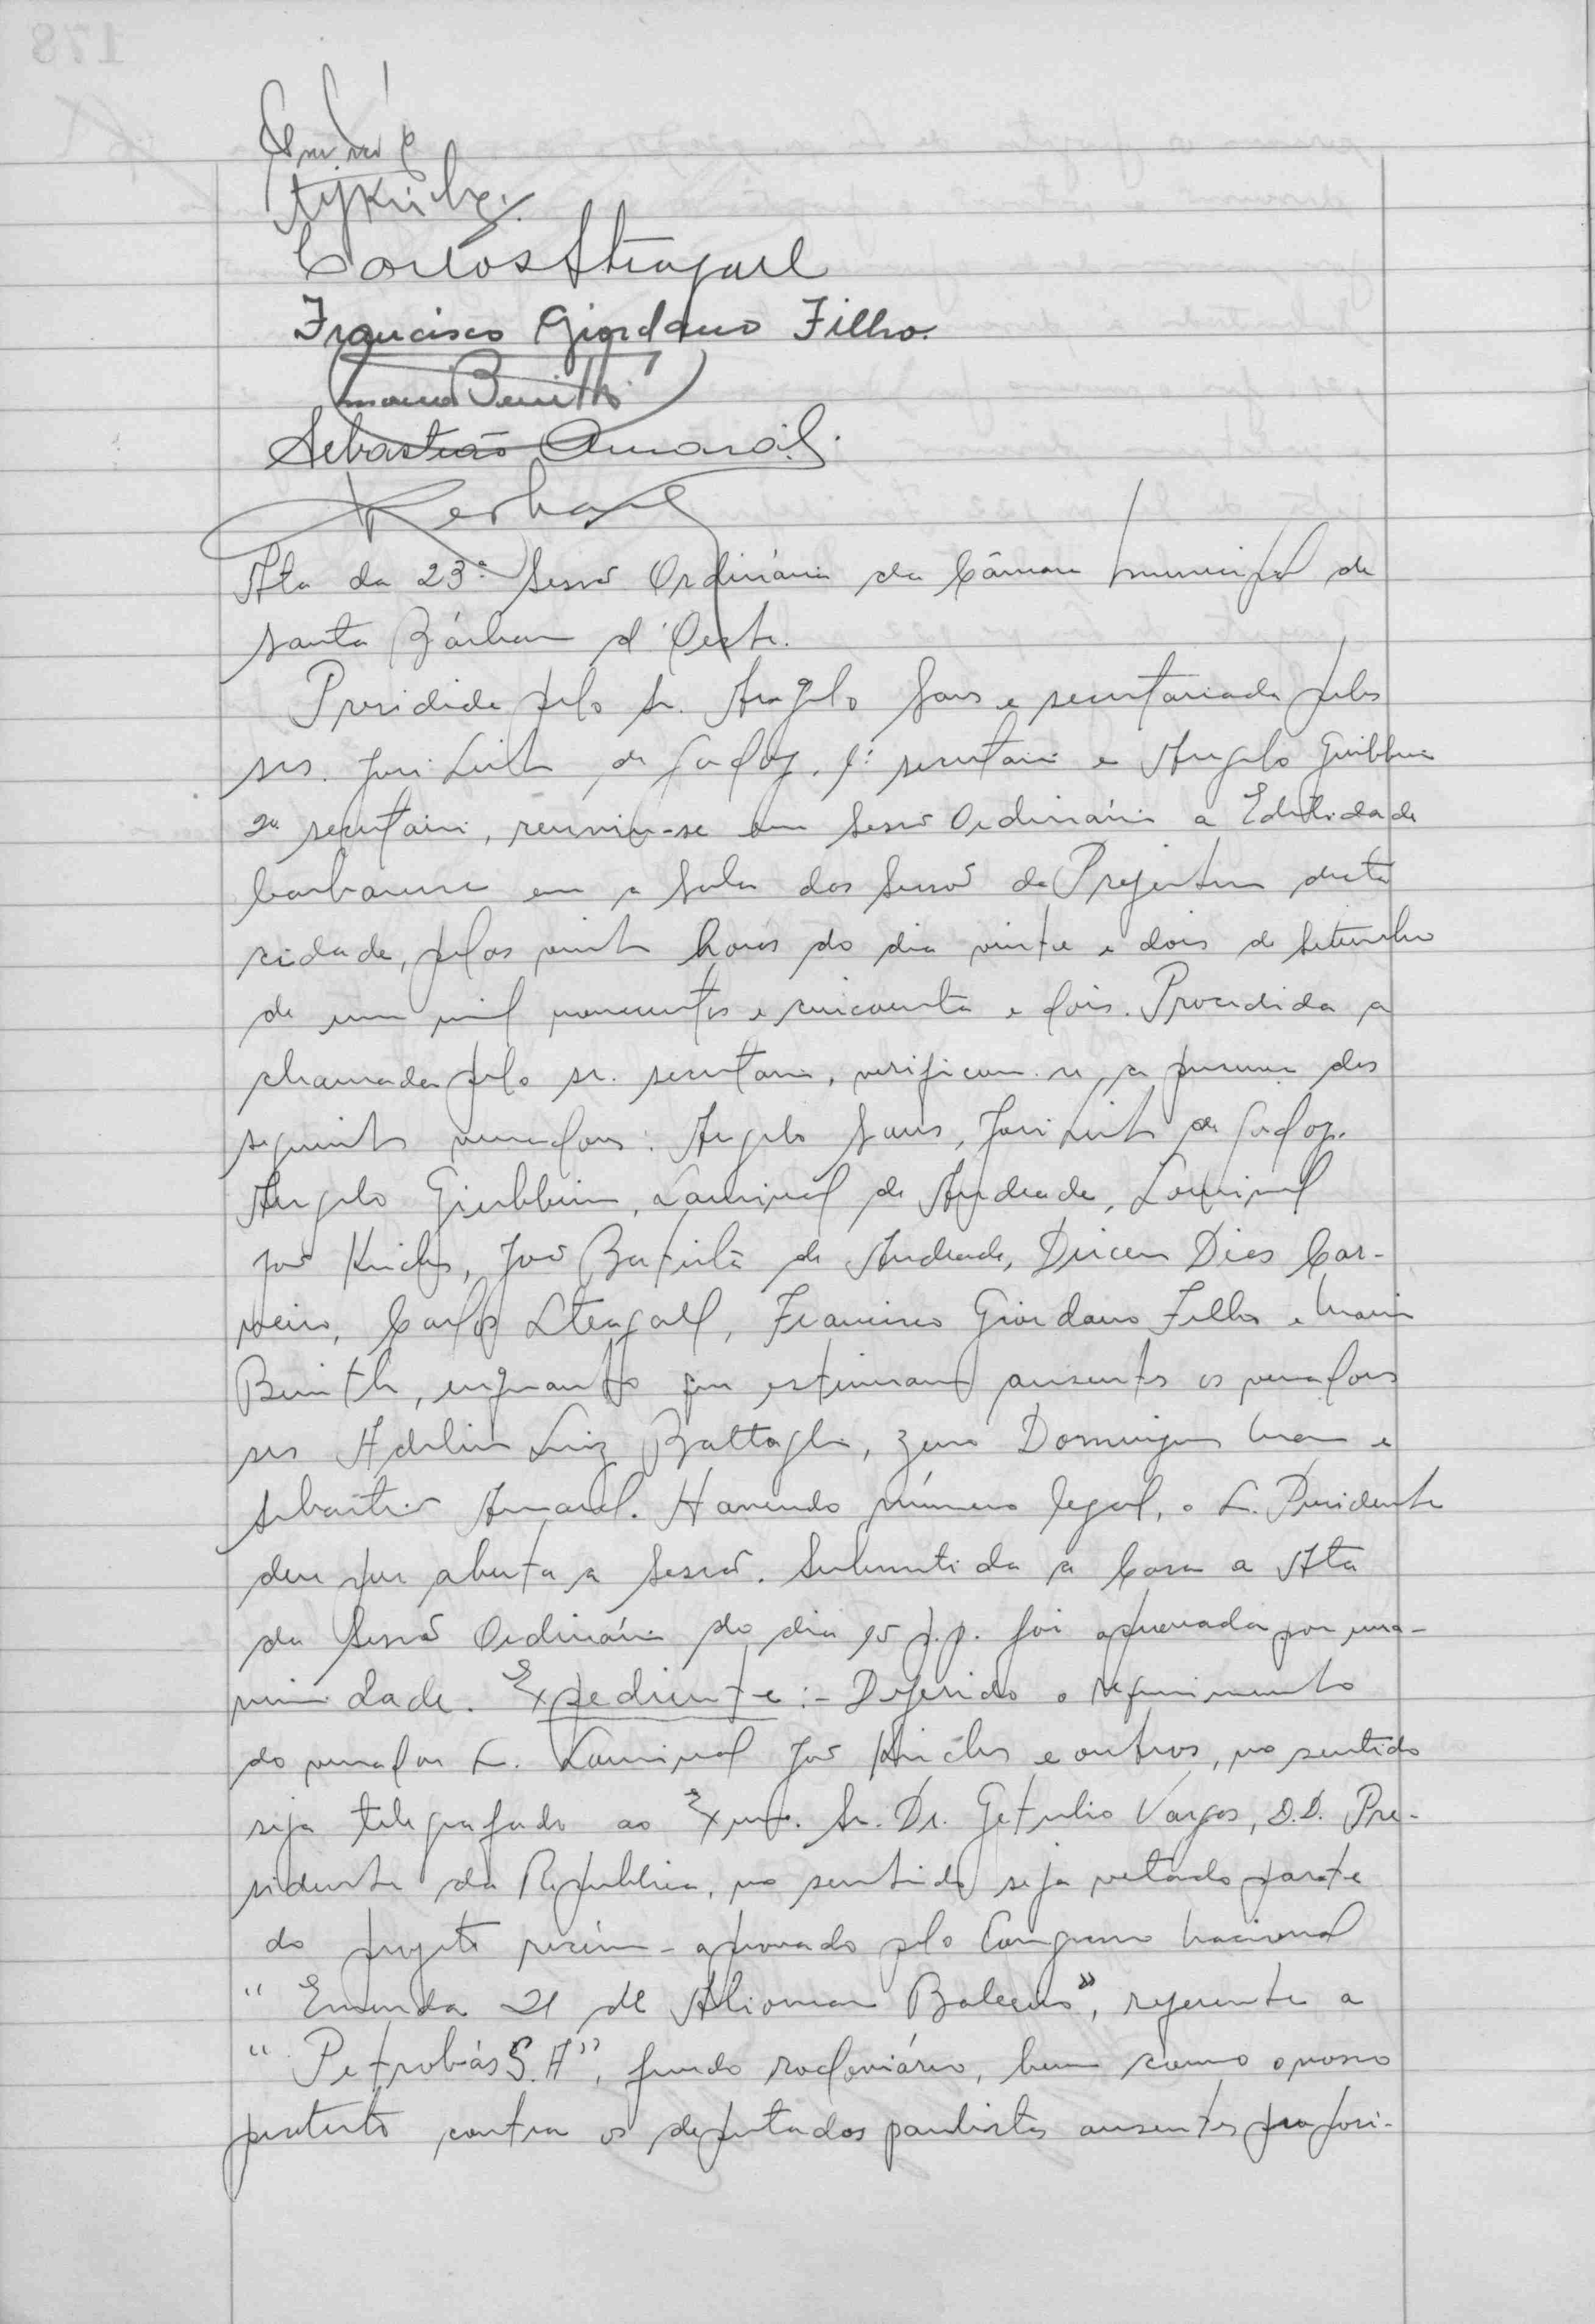 Carlos Steagall
Francisco Giordano Filho.
Mario Benith
Sebastião Amaral.
Ata da 23ª Sessão Ordinária da Câmara Municipal de
Santa Bárbara d'Oeste.
Presidida pelo Sr. Angelo Sans e secretariada pelos
srs. José Leite de Godoy, 1º secretario e Angelo Giubbina
2º secretario, reuniu-se em Sessão Ordinária a Edilidade
barbarense em a Sala das Sessões da Prefeitura desta
cidade, pelas vinte horas do dia vinte e dois de Setembro
de um mil novecentos e cincoenta e dois. Procedida a
chamada pelo sr. secretario, verificou-se a presença dos
seguintes vereadores: Angelo Sans, José Leite de Godoy,
Angelo Giubbina, Lourival de Andrade, Lourival
José Kuchs, José Batista de Andrade, Dirceu Dias Car-
neiro, Carlos Steagall, Francisco Giordano Filho e Mario
Benith, enquanto que estiveram ausentes os vereadores
srs Adelino Luiz Battaglia, Zeno Domingos Maia e
Sebastião Amaral. Havendo número legal, o Sr. Presidente
deu por aberta a Sessão. Submetida a Casa a Ata
da Sessão Ordinária do dia 15 p.p. foi aprovada por una-
nimidade. Expediente:- Deferido o requerimento
do vereador Sr. Lourival José e outros, no sentido
seja telegrafado ao Exmo. Sr. Dr. Getulio Vargas, D.D. Pre-
sidente da Republica, no sentido seja vetado parte
do projeto recém-aprovado pelo Congresso Nacional
"Emenda 21 de Aliomar Baleeiro", referente a
"Petrobás S.A", fundo rodoviário, bem como o nosso
protesto contra os deputados paulistas ausentes proposi-